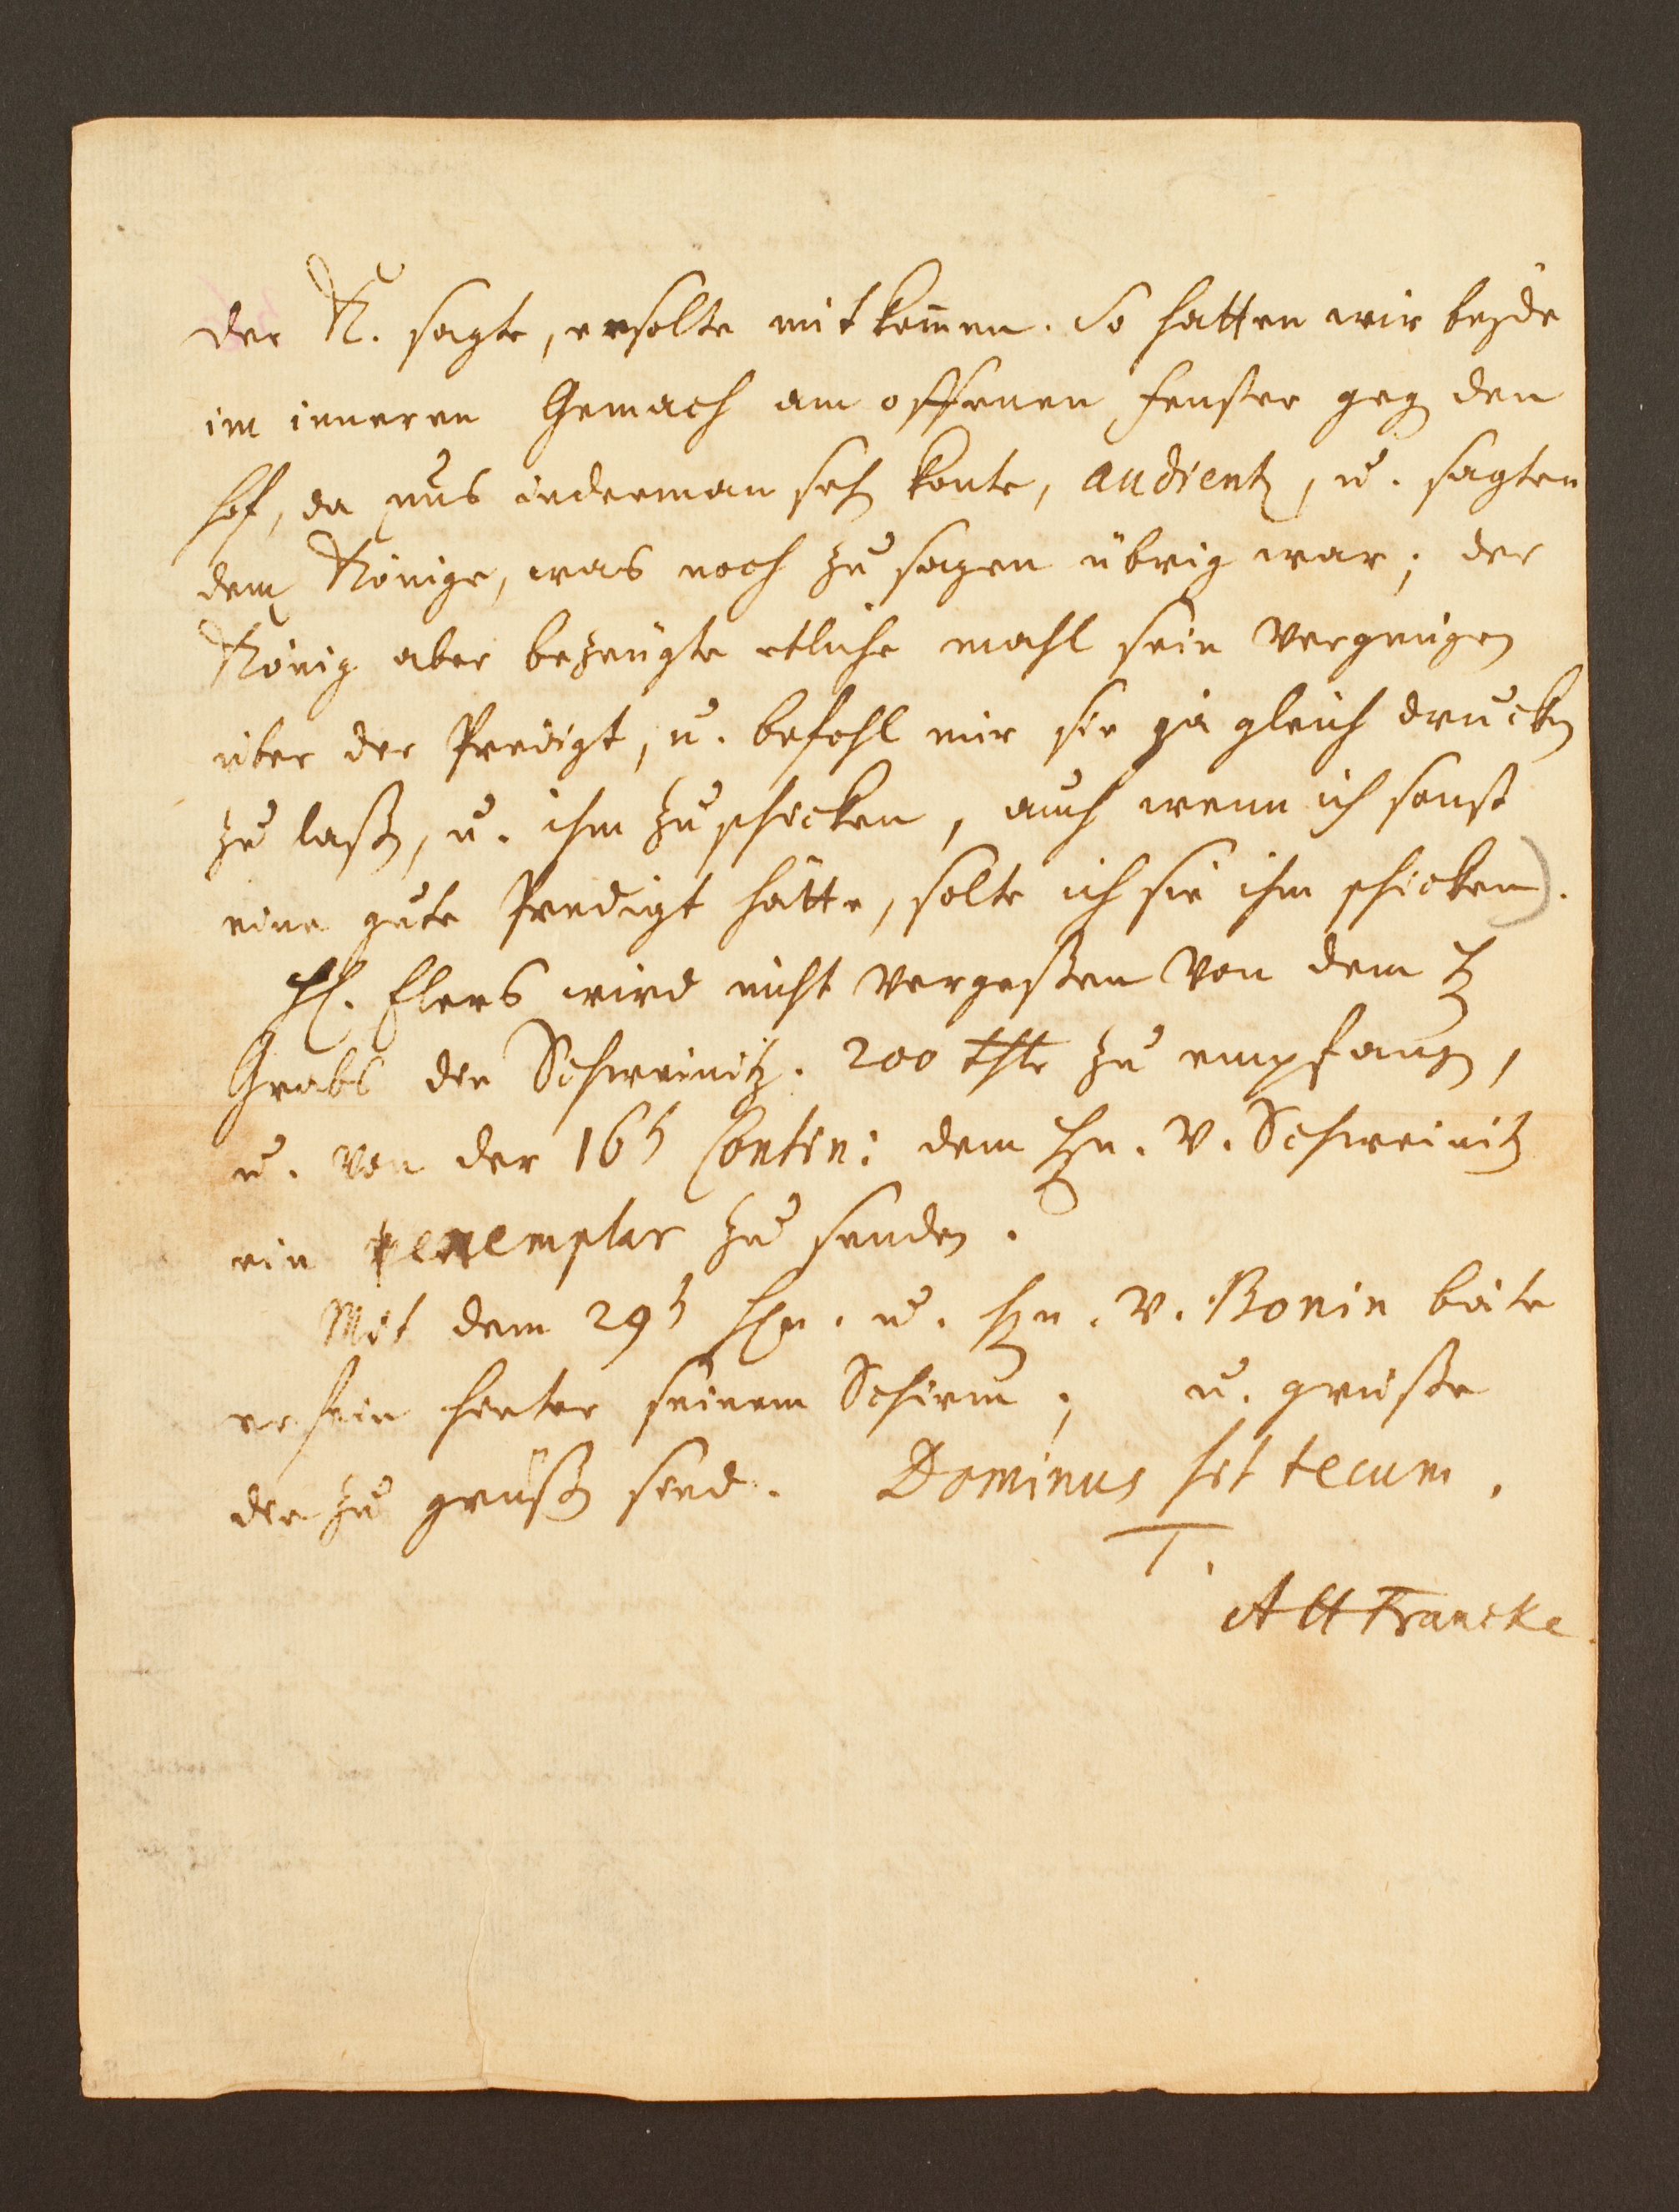 der K. sagte, er solte mit kom̄en. So hatten wir beyde
im inneren Gemach am offenen Fenster geg den
Hof, da uns iederman seh konte, audientz, u. sagten
dem Könige, was noch zu sagen übrig war; der
König aber bezeugte etliche mahl sein Vergnügen
über der Predigt, u. befohl mir sie ja gleich drucken
zu laßen, u. ihm zu schicken, auch wenn ich sonst
eine gute Predigt hätte, solte ich sie ihm schicken).
H. Elers wird nicht vergeßen von dem H
Grabs die Schweinitz. 200 thlr zu empfangen,
u. von der 16t Contin: dem Hn. v. Schweinitz
ein exemplar zu senden.
Mit dem 29t Hn. u. Hn. v. Bonin
er sein hinter seinem Schirm; u. grüße
die zu grüßen sind. Dominus sit tecum.
T.
AHFrancke.